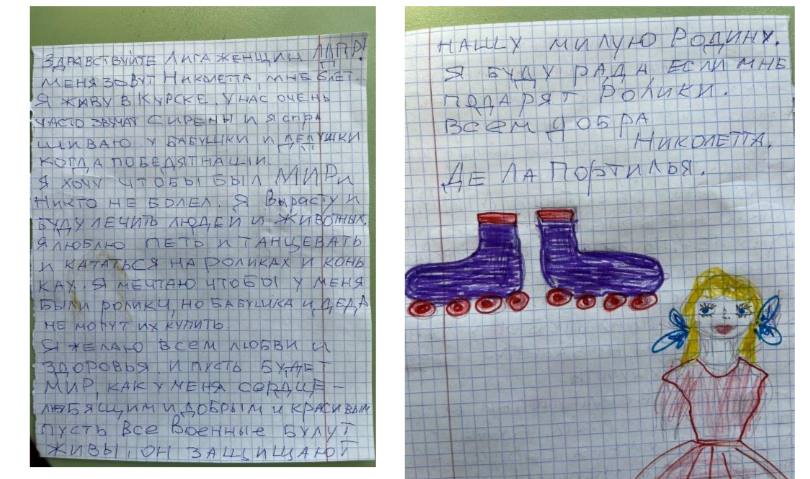 ЗДРАВСТВУЙТЕ ЛИГА ЖЕНЩИН ЛДПР!
МЕНЯ ЗОВУТ НИКОЛЕТТА, МНЕ 8 ЛЕТ.
Я ЖИВУ В КУРСКЕ. У НАС ОЧЕНЬ
ЧАСТО ЗВУЧАТ СИРЕНЫ И Я СПРА
ШИВАЮ У БАБУШКИ И ДЕДУШКИ
КОГДА ПОБЕДЯТ НАШИ.
Я ХОЧУ ЧТОБЫ БЫЛ МИР И
НИКТО НЕ БОЛЕЛ. Я ВЫРАСТУ И
БУДУ ЛЕЧИТЬ ЛЮДЕЙ И ЖИВОТНЫХ.
Я ЛЮБЛЮ ПЕТЬ И ТАНЦЕВАТЬ
И КАТАТЬСЯ НА РОЛИКАХ И КОНЬ
КАХ. Я МЕЧТАЮ ЧТОБЫ У МЕНЯ
БЫЛИ РОЛИКИ, НО БАБУШКА И ДЕДА
НЕ МОГУТ ИХ КУПИТЬ.
Я ЖЕЛАЮ ВСЕМ ЛЮБВИ И
ЗДОРОВЬЯ И ПУСТЬ БУДЕТ
МИР, КАК У МЕНЯ СЕРДЦЕ –
ЛЮБЯЩИМ И ДОБРЫМ И КРАСИВЫМ
ПУСТЬ ВСЕ ВОЕННЫЕ БУДУТ
ЖИВЫ, ОН ЗАЩИЩАЮТ
НАШУ МИЛУЮ РОДИНУ.
Я БУДУ РАДА, ЕСЛИ МНЕ
ПОДАРЯТ РОЛИКИ.
ВСЕМ ДОБРА
НИКОЛЕТТА.
ДЕ ЛА ПОРТИЛЬЯ.